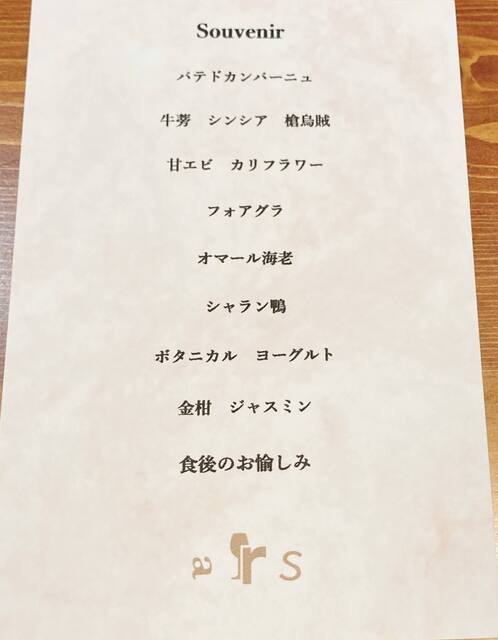 Souvenir
パテドカンパーニュ
牛蒡　シンシア　槍烏賊
甘エビ　カリフラワー
フォアグラ
オマール海老
シャラン鴨
ボタニカル　ヨーグルト
金柑　ジャスミン
食後のお愉しみ
ars